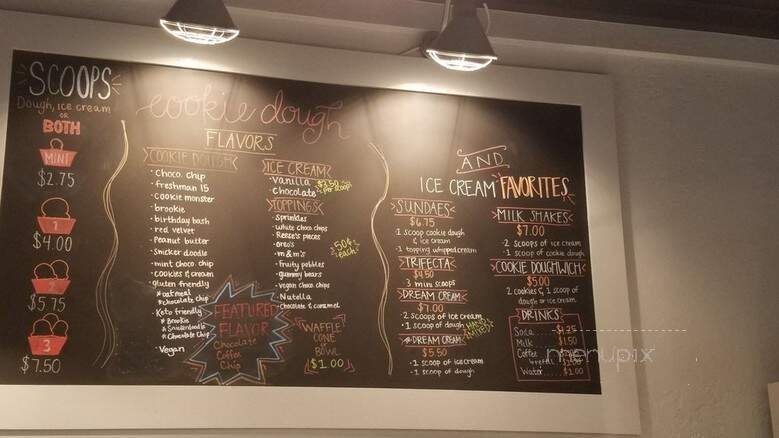 SCOOPS
Dough, ice cream
OR
BOTH
MINI
$2.75
1
$4.00
2
$5.75
3
$7.50
cookie dough
FLAVORS
COOKIE DOUGH
· choco. chip
· freshman 15
· cookie monster
· brookie
· birthday bash
· red velvet
· Peanut butter
· Snicker doodle
· mint choco. chip
· cookies & cream
· gluten friendly
* oatmeal
* chocolate chip
· Keto friendly
* Brookie
* Snickerdoodle
* Chocolate Chip
· Vegan
FEATURED
FLAVOR
Chocolate
Coffee
Chip
ICE CREAM
· vanilla
· chocolate
$3.50
per scoop
TOPPINGS
· sprinkles
· white choco chips
· Reese's pieces
· oreo's
· m & m's
· Fruity pebbles
· gummy bears
· vegan choco chips
· Nutella
· chocolate & caramel
50¢
each
WAFFLE
CONE
or
BOWL
$1.00
AND
ICE CREAM FAVORITES
SUNDAES
$6.75
· 1 scoop cookie dough
& ice cream
· 1 topping whipped cream
TRIFECTA
$4.50
3 mini scoops
DREAM CREAM
$7.00
· 2 scoops of ice cream
· 1 scoop of dough
DREAM CREAM
$5.50
· 1 scoop of ice cream
· 1 scoop of dough
MILK SHAKES
$7.00
· 2 scoops of ice cream
· 1 scoop of cookie dough
COOKIE DOUGHWICH
$5.00
2 cookies & 1 scoop of
dough or ice cream
DRINKS
Soda $1.25
Milk $1.50
Coffee
Water $1.00
menupix